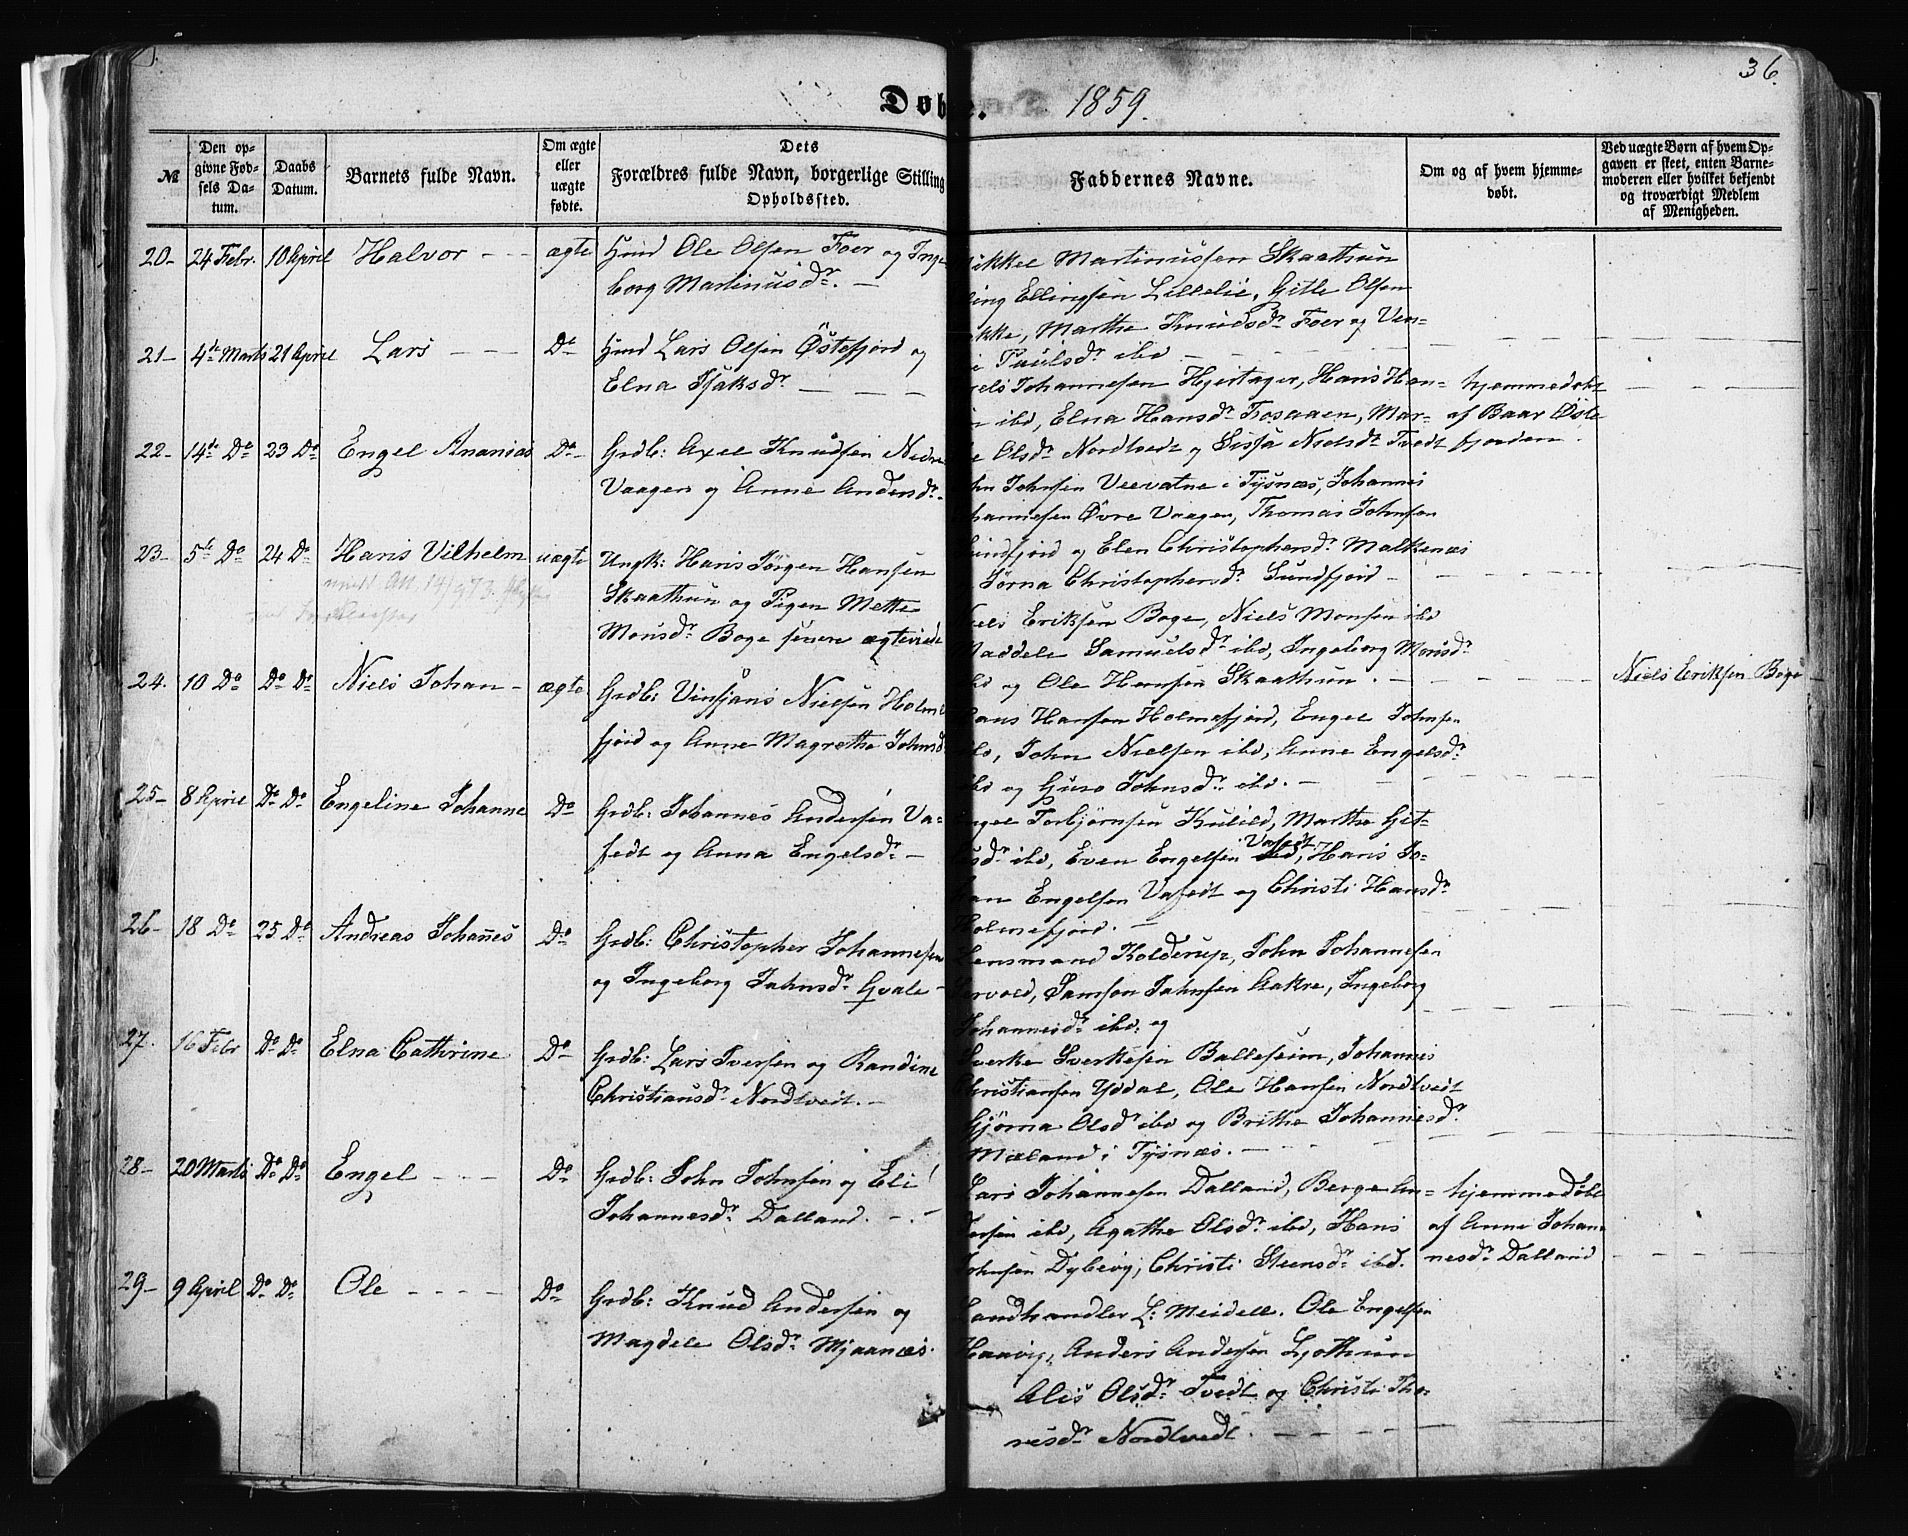 36.
Døb . 1859.
№
Den op-
givne Fød-
sels Da-
tum.
Daabs
Datum.
Barnets fulde Navn.
Om ægte
eller
uægte
fødte.
Dets
Forældres fulde Navn, borgerlige Stilling
Opholdssted.
Faddernes Navne.
Om og af hvem hjemme-
døbt.
Ved uægte Børn af hvem Op-
gaven er skeet, enten Barne-
moderen eller hvilket bekjendt
og troværdigt Medlem
af Menigheden.
20- 24 Febr. 10 April Halvor - - - ægte Hmd Ole Olsen Foer og Inge-
borg Martinusdr. -
ikkel Martinussen Skaathun
ling Ellingsen Lillelie, Gitle Olsen
kke, Marthe Knudsdr Foer og Ven-
e Paulsdr ibd - - -
21- 4de Marts 21 April Lars - - - Do Hmd Lars Olsen Østefjord og
Elna Isaksdr - - -
els Johannesen Hjertager, Hans Han-
n ibd, Elna Hansdr Fosaaen, Mar-
e Olsdr Nordtvedt og Sissa Nielsdr Tvedt
hjemmedøbt
af Baar Øste
fjorden.
22- 14de Do 23 Do Engel Ananias Do- Grdb: Axel Knudsen Nedre
Vaagen og Anne Andersdr.
hn Johnsen Veevatne i Tysnæs, Johannes
hannesen Øvre Vaagen, Thomas Johnsen
undfjord og Elen Christophersdr Malkenæs
Jørna Christophersdr Sundfjord - - -
23- 5te Do 24 Do Hans Vilhelm uægte Ungk: Hans Jørgen Hansen
Skaathun og Pigen Mette
Monsdr Boge senere ægteviede
els Eriksen Boge, Niels Monsen ibd
Maddele Samuelsdr ibd, Ingeborg Monsdr
bd og Ole Hansen Skaathun. - - -
Niels Eriksen Boge
24. 10 Do Do Do Niels Johan - ægte Grdb: Vinsjans Nielsen Holme
fjord og Anne Magrethe Johnsd
Hans Hansen Holmefjord, Engel Johnsen
ibd, John Nielsen ibd, Anne Engelsdr
ibd og Guro Johnsdr ibd. -
25- 8 April Do Do Engeline Johanne Do Grdb: Johannes Andersen Va-
fedt og Anna Engelsdr -
ngel Torbjørnsen Kulild, Marthe Git-
esdr ibd, Even Engelsen Vafedt, Hans Jo-
han Engelsen Vafedt og Christi Hansdr
Holmefjord. -
26- 18 Do 25 Do Andreas Johannes Do- Grdb: Christopher Johannesen
og Ingeborg Jahnsdr Gvale -
Lensmand Kolderup, John Johannesen
ervold, Samson Jahnsen Aakre, Ingeborg
Johannesdr ibd: og
27. 16 Febr Do Do Elna Cathrine Do- Grdb: Lars Iversen og Randine
Christiansdr Nordtvedt. -
Sverke Sverkesen Balleseim, Johannes
Christiansen Yddal, Ole Hansen Nordtvedt
Gjørna Olsdr ibd og Brithe Johannesdr
Mæland i Tysnæs. -
28- 20 Marts Do Do Engel - - - Do Grdb: John Johnsen og Eli
Johannesdr Dalland. - . -
Lars Johannesen Dalland, Berge An-
dersen ibd, Agathe Olsdr ibd, Hans
Johnsen Dybevig, Christi Steensdr ibd.
hjemmedøbt
af Anne Johan-
nesdr Dalland
29- 9 April Do Do Ole - - - - Do- Grdb: Knud Andersen og
Magdele Olsdr Mjaanæs.
Landhandler L: Meidell. Ole Engelsen
Haavig, Anders Andersen Lyothun
Alis Olsdr Tvedt og Christi Tho-
resdr Nordtvedt. - - - -